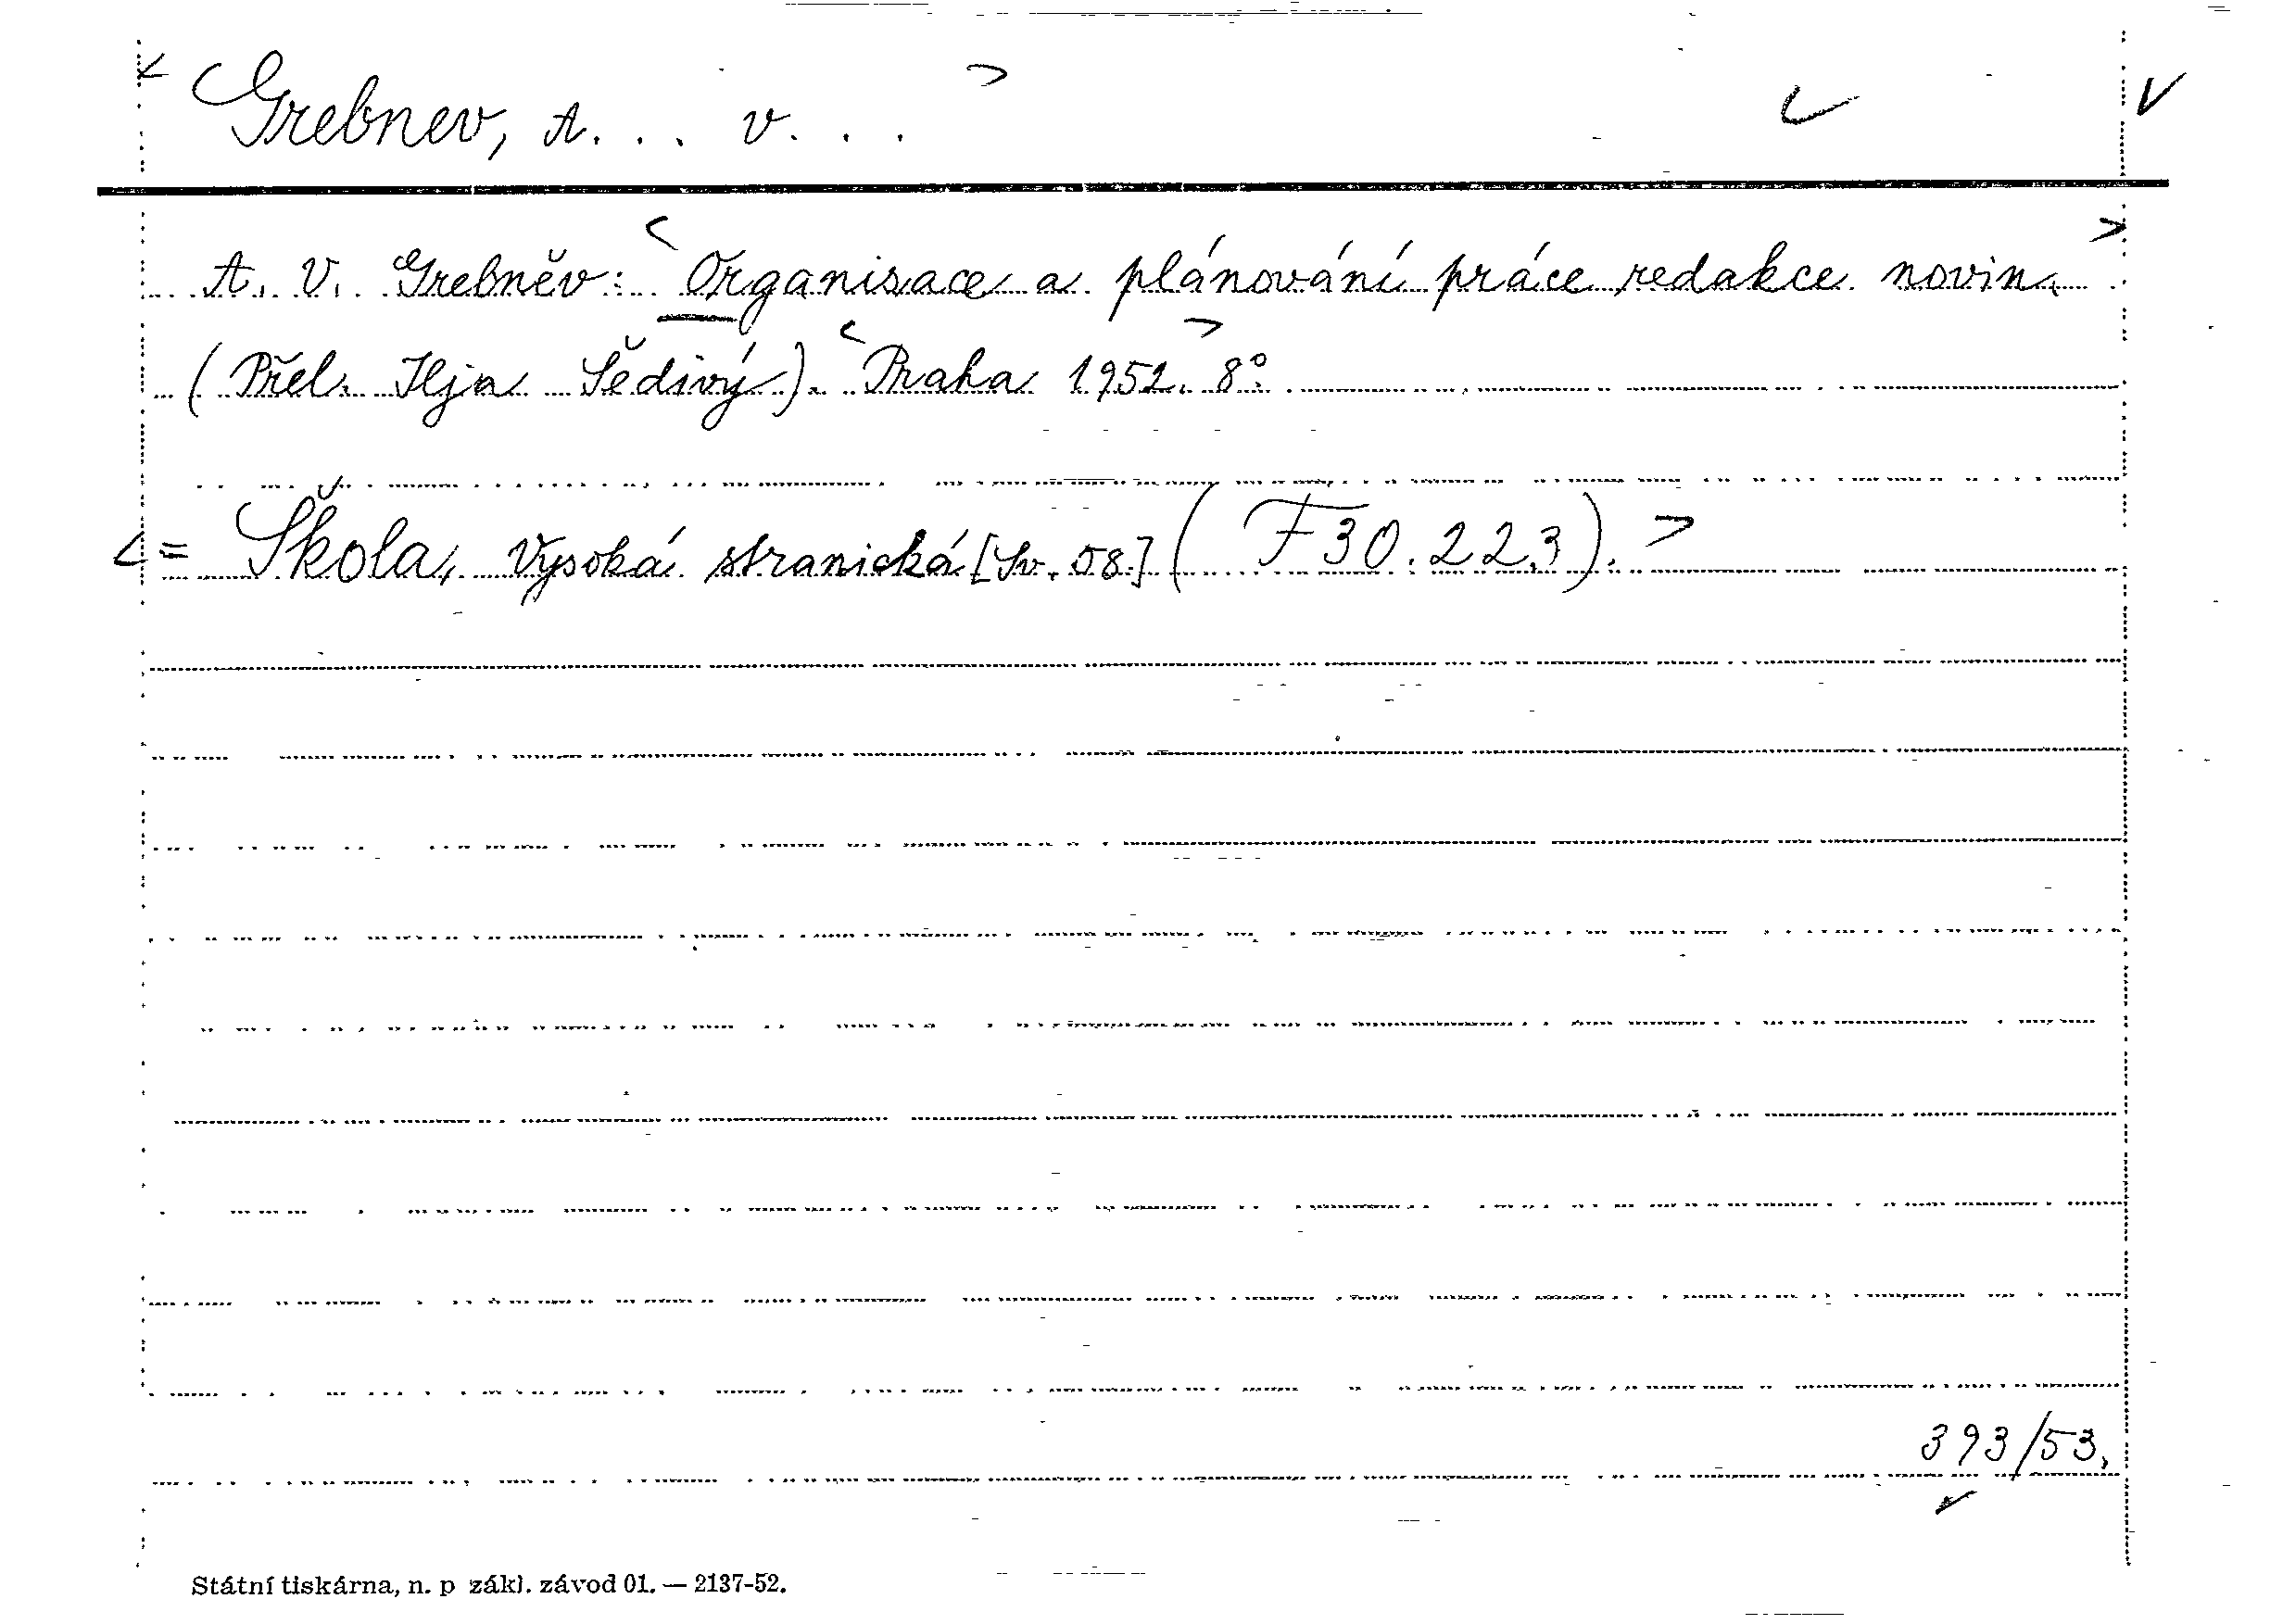 < Grebnev, A. . . V. . . >
A. V. Grebněv: <Organisace a plánování práce redakce novin.>
(Přel. Ilja Šedivý). <Praha 1952.> 8°.
<= Škola, Vysoká stranická [Sv. 58.] (F 30.223). >
393/53.
Státní tiskárna, n. p zákl. závod 01. — 2137-52.